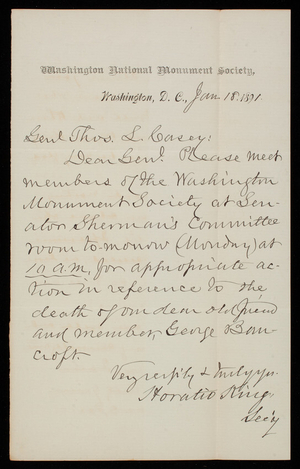 Washington National Monument Society,
Washington, D. C., Jan 18, 1891
Genl Thos. L. Casey:
Dear Genl. Please meet
members of the Washington
Monument Society at Sen-
ator Sherman's Committee
room to-morrow (Monday) at
10 a.m. for appropriate ac-
tion in reference to the
death of our dear old friend
and member, George Ban-
croft.
Very respfly & truly yrs.
Horatio King.
Secy